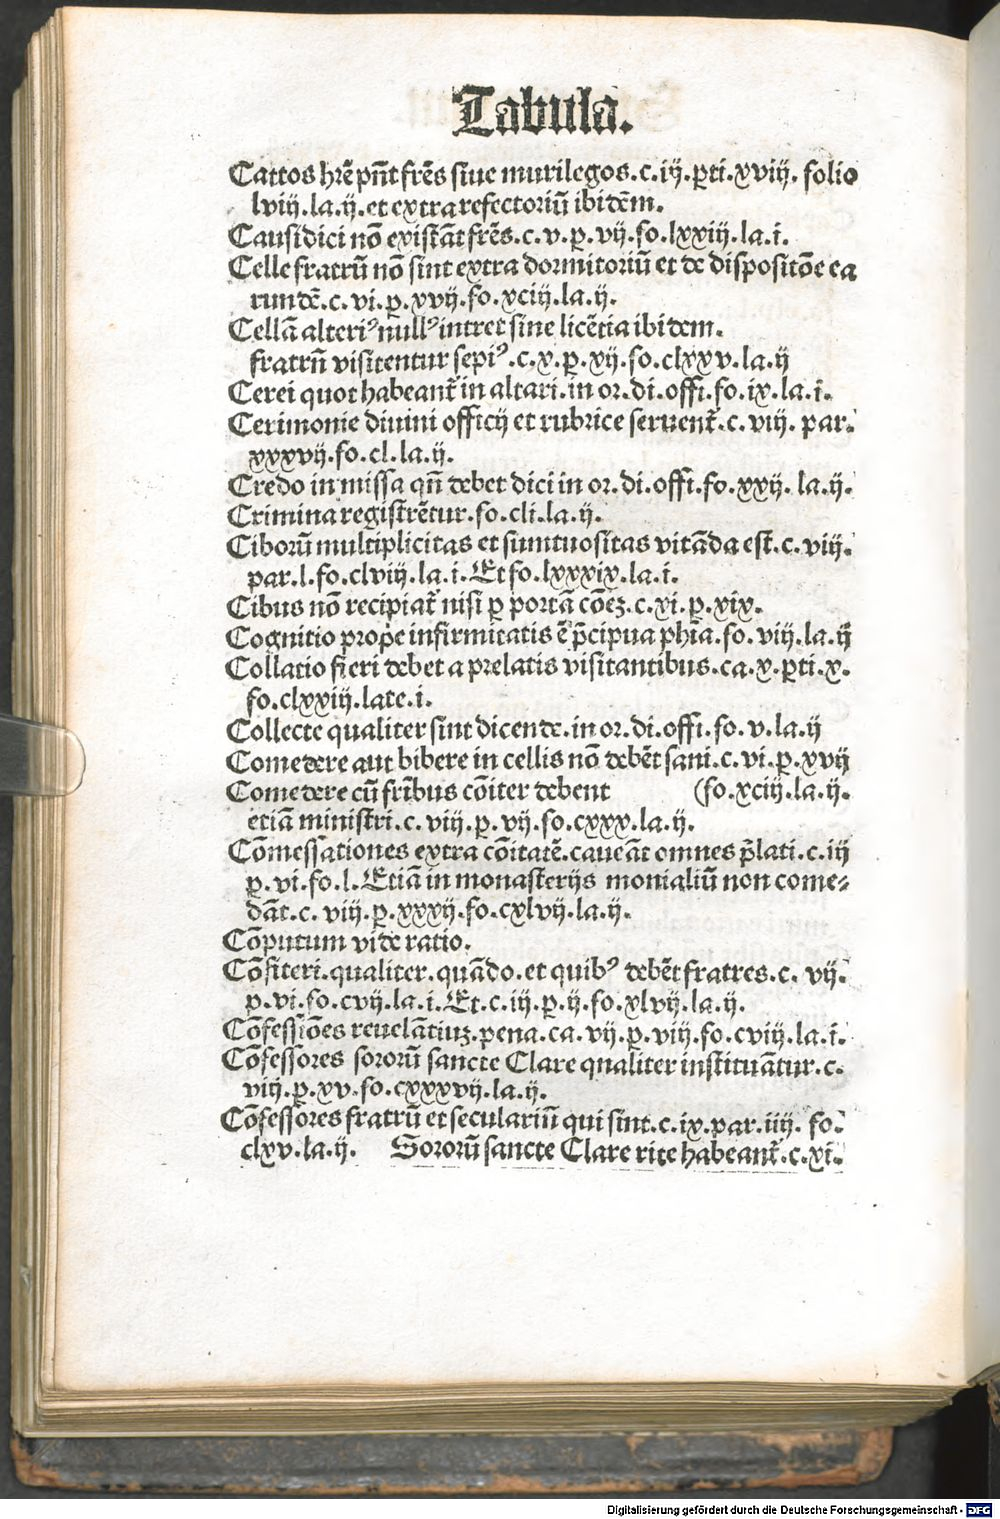 Tabula.
Cattos hr̃e pñt frẽs siue murilegos.c.iij.ꝑti.xviij. folio
lviij.la.ij.et extra refectoriũ ibidẽm.
Causidici nõ existãt frẽs.c.v.ꝑ.vij.fo.lxxiij.la.i.
Celle fratrũ nõ sint extra dormitoriũ et de dispositõe ea
rundẽ.c.vi.ꝑ.xvij.fo.xciij.la.ij.
Cellã alteriꝰ nullꝰ intret sine licẽtia ibidem.
fratrũ visitentur sepiꝰ.c.x.ꝑ.xij.fo.clxxv.la.ij
Cerei quot habeant̃ in altari.in or.di.offi.fo.ix.la.i.
Cerimonie diuini officij et rubrice seruent̃.c.viij. par.
xxxvij.fo.cl.la.ij.
Credo in missa qñ debet dici in or.di.offi.fo.xxij. la.ij.
Crimina registrẽtur.fo.cli.la.ij.
Ciborũ multiplicitas et sumtuositas vitãda est.c.viij.
par.l.fo.clviij.la.i.Et fo.lxxxix.la.i.
Cibus nõ recipiat̃ nisi ꝑ portã cõeꝫ.c.xi.ꝑ.xix.
Cognitio prop̃e infirmitatis ẽ p̃cipua phĩa.fo.viij.la.ij
Collatio fieri debet a prelatis visitantibus.ca.x.ꝑti.x.
fo.clxxiij.late.i.
Collecte qualiter sint dicende.in or.di.offi.fo.v.la.ij
Comedere aut bibere in cellis nõ debẽt sani.c.vi.ꝑ.xvij
Comedere cũ frĩbus cõiter debent (fo.xciij.la.ij.
etiã ministri.c.viij.ꝑ.vij.fo.cxxx.la.ij.
Cõmessationes extra cõitatẽ.caueãt omnes p̃lati.c.iij
ꝑ.vi.fo.l.Etiã in monasterijs monialiũ non come⸗
dãt.c.viij.ꝑ.xxxij.fo.cxlvij.la.ij.
Cõputum vide ratio.
Cõfiteri.qualiter.quãdo.et quibꝰ debẽt fratres.c. vij.
ꝑ.vi.fo.cvij.la.i.Et.c.iij.ꝑ.ij.fo.xlvij.la.ij.
Cõfessiões reuelãtiuꝫ.pena.ca.vij.ꝑ.viij.fo.cviij.la.i.
Cõfessores sororũ sancte Clare qualiter instituãtur.c.
viij.ꝑ.xv.fo.cxxxvij.la.ij.
Cõfessores fratrũ et seculariũ qui sint.c.ix.par.iiij. fo.
clxv.la.ij. Sororũ sancte Clare rite habeant̃.c.xi.
Digitalisierung gefördert durch die Deutsche Forschungsgemeinschaft - DFG